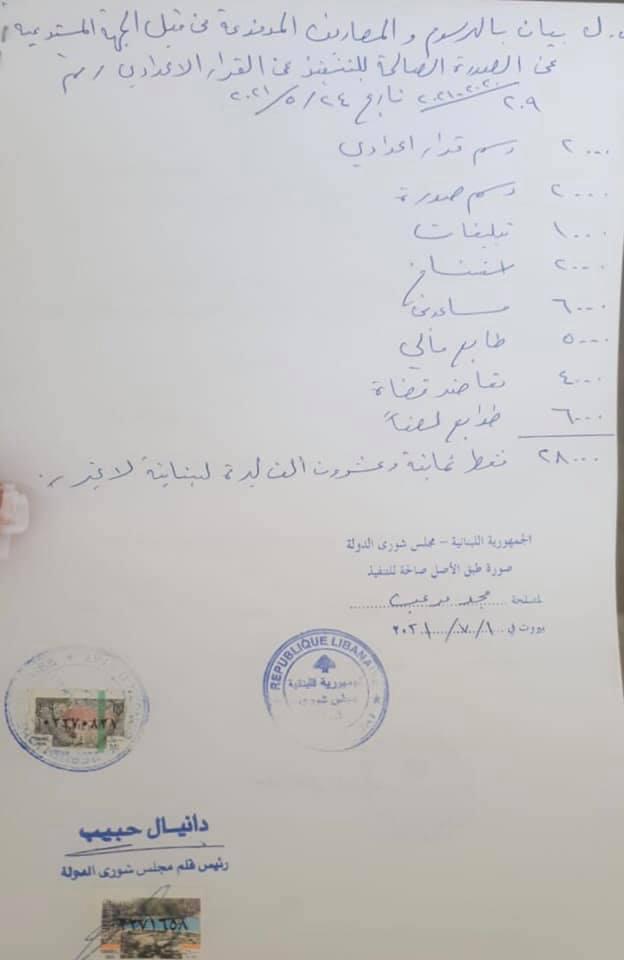 بيان بالرسوم و المصاريف المدفوعة من قبل الجهة المستدعية
عن الصورة الصالحة للتنفيذ عن القرار الاعدادي رقم
٢٠٩ / ٢٠٢٠-٢٠٢١ تاريخ ٢٤/٥/٢٠٢١
٢٠٠٠ رسم قرار اعدادي
٢٠٠٠ رسم صورة
١٠٠٠ تبليغات
٢٠٠٠ استنساخ
٦٠٠٠
٥٠٠٠ طابع مالي
٤٠٠٠ تعاضد قضاة
٦٠٠٠ طوابع لصقاً
٢٨٠٠٠ فقط ثمانية وعشرون الف ليرة لبنانية لا غير
الجمهورية اللبنانية – مجلس شورى الدولة
صورة طبق الأصل صالحة للتنفيذ
لمصلحة
بيروت في ١/٧/٢٠٢١
REPUBLIQUE LIBANAISE
الجمهورية اللبنانية
مجلس شورى
دانيال حبيب
رئيس قلم مجلس شورى الدولة